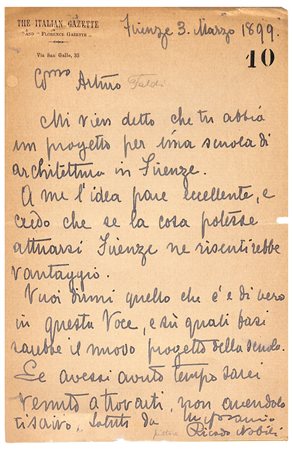 THE ITALIAN GAZETTE
AND "FLORENCE GAZETTE"
Via San Gallo, 33
Firenze 3. Marzo 1899.
10
Arturo Faldi
Mi vien detto che tu abbia
un progetto per una scuola di
architettura in Firenze.
A me l'idea pare eccellente, e
credo che se la cosa potesse
attuarsi Firenze ne risentirebbe
vantaggio.
Vuoi dirmi quello che c'è di vero
in questa Voce, e sù quali basi
sarebbe il nuovo progetto della scuola.
Se avessi avuto tempo sarei
venuto a trovarti, non avendolo
ti scrivo. Saluti da
Riccardo Nobili
pittore